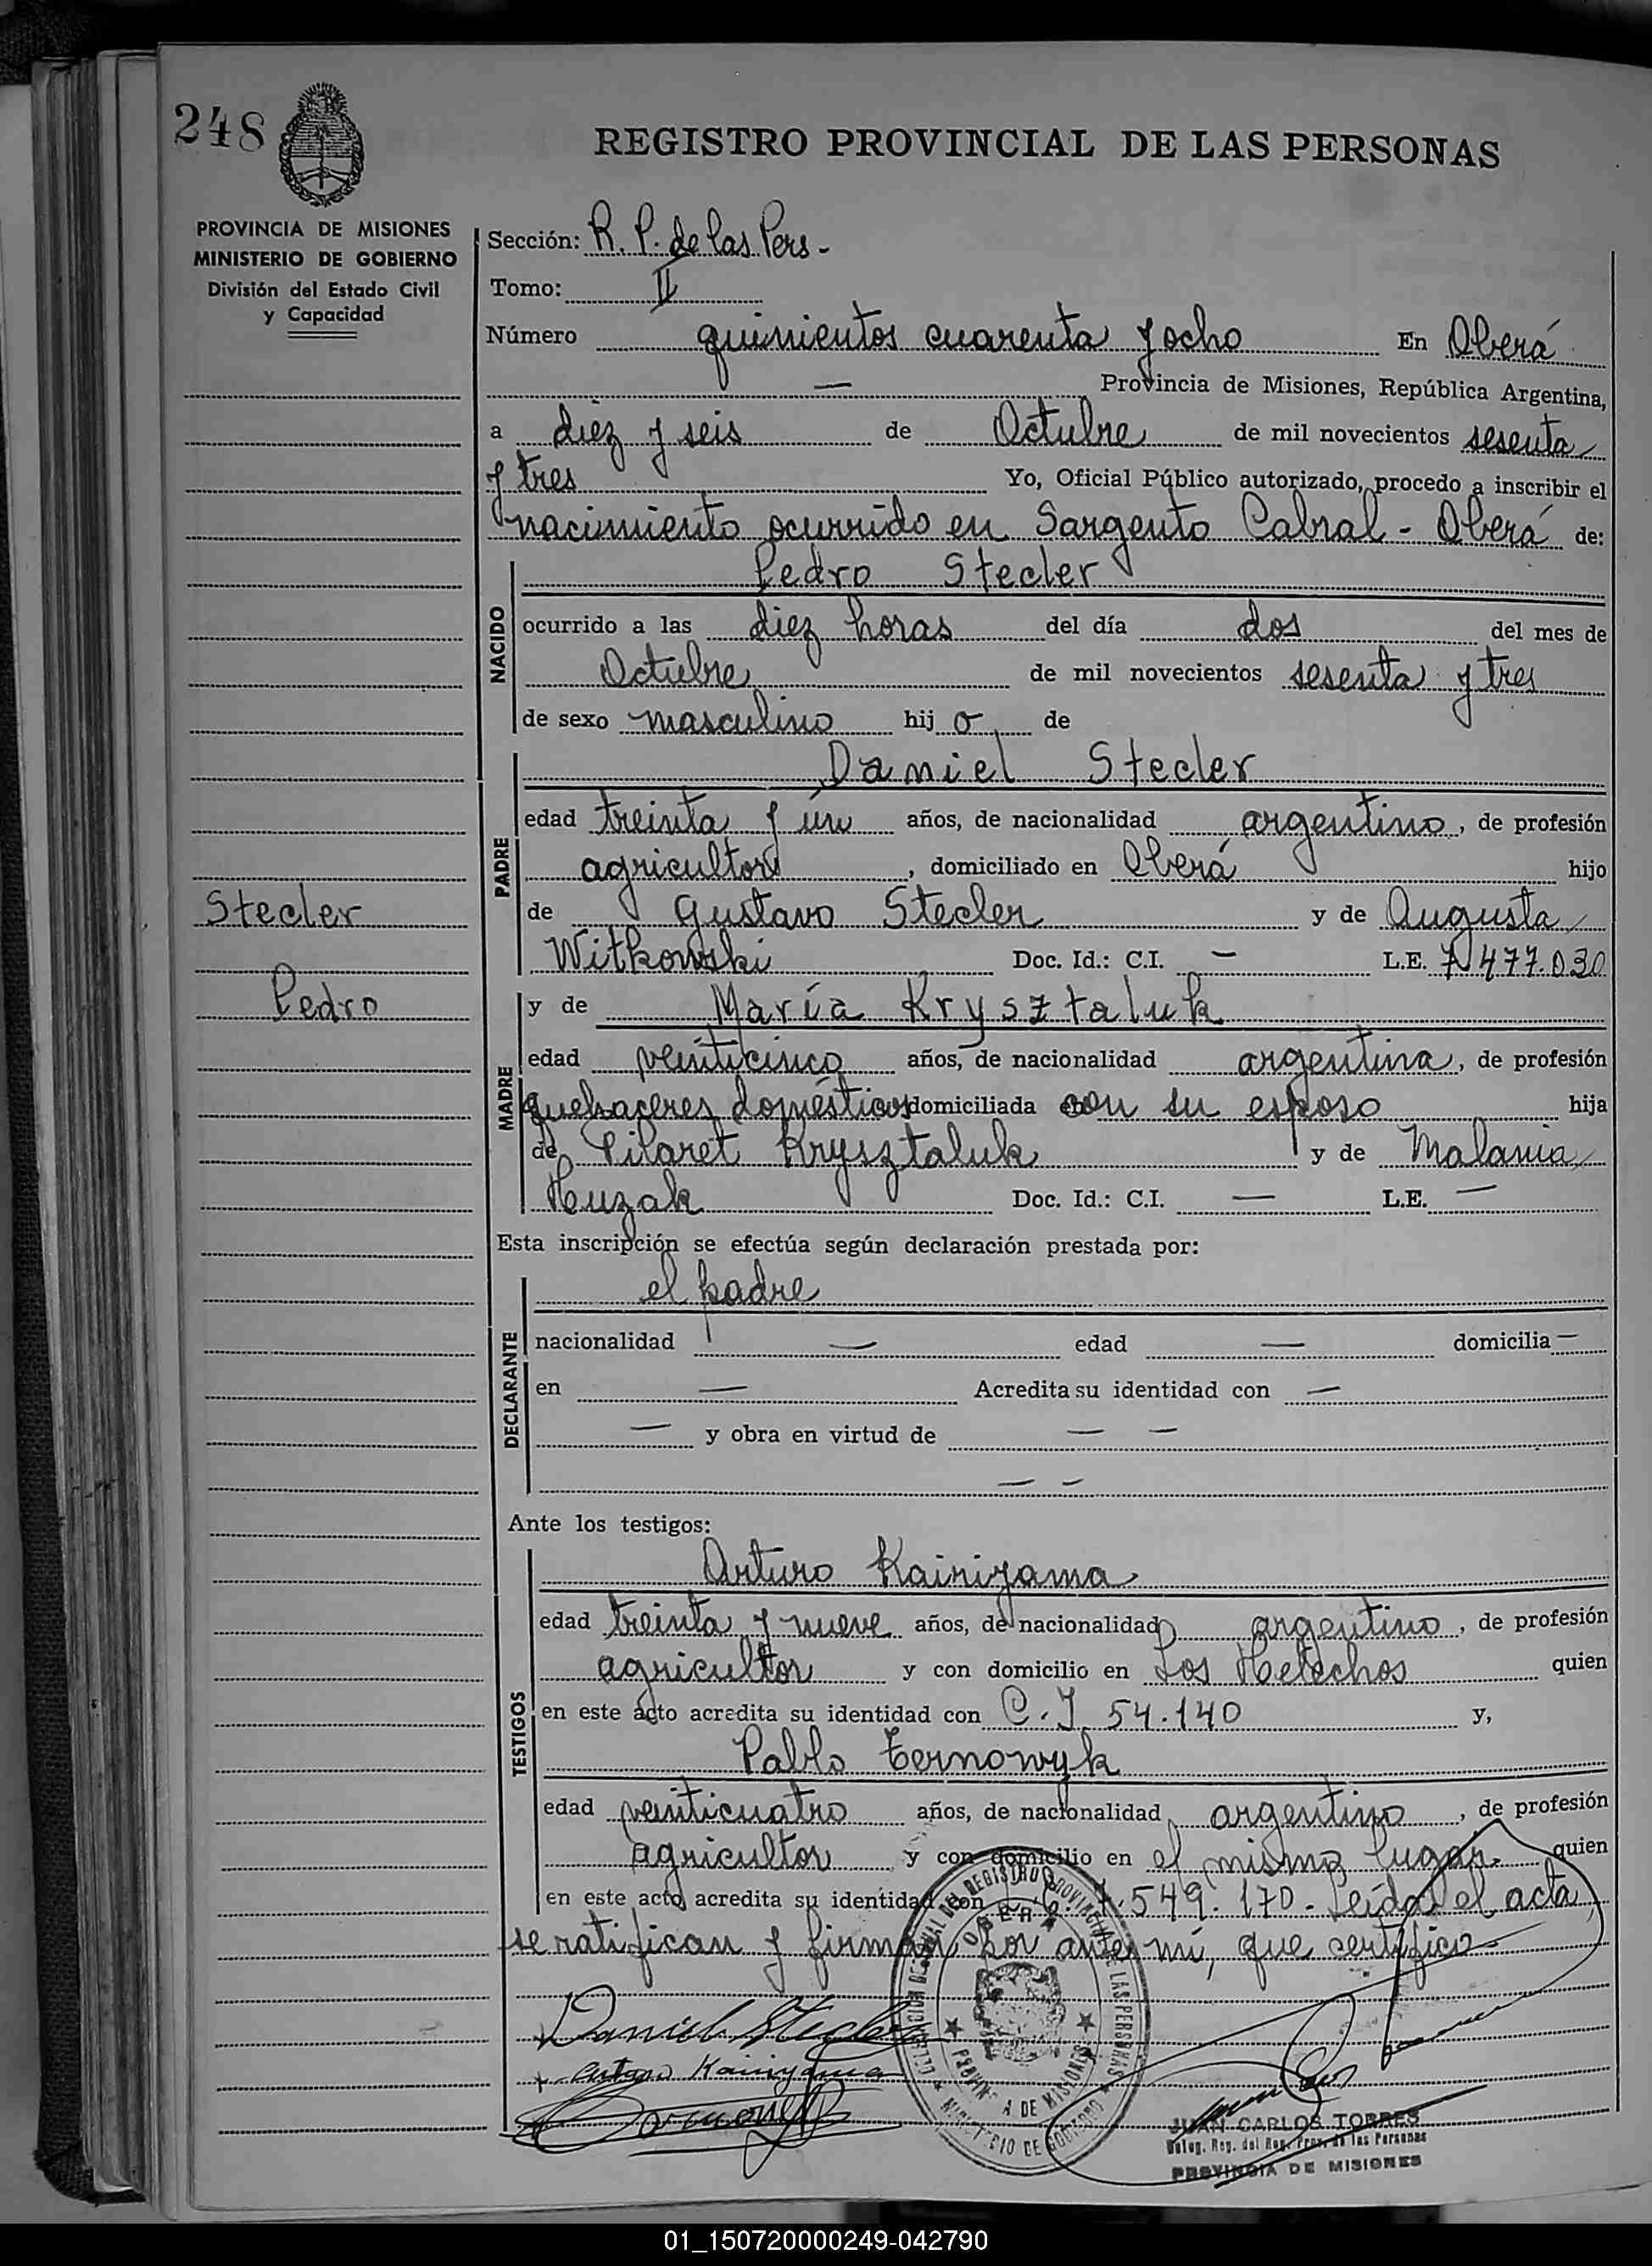 248
REGISTRO PROVINCIAL DE LAS PERSONAS
PROVINCIA DE MISIONES
MINISTERIO DE GOBIERNO
División del Estado Civil
y Capacidad
Sección: R. P. de las Pers -
Tomo: II
Número quinientos cuarenta y ocho En Oberá
— Provincia de Misiones, República Argentina,
a diez y seis de Octubre de mil novecientos sesenta
y tres Yo, Oficial Público autorizado, procedo a inscribir el
nacimiento ocurrido en Sargento Cabral - Oberá de:
NACIDO
Pedro Stecler
ocurrido a las diez horas del día dos del mes de
Octubre de mil novecientos sesenta y tres
de sexo masculino hij o de
PADRE
Daniel Stecler
edad treinta y un años, de nacionalidad argentino, de profesión
agricultor, domiciliado en Oberá hijo
de Gustavo Stecler y de Augusta
Witkowski Doc. Id.: C.I. — L.E. 7477.030
Stecler
Pedro
MADRE
y de María Krysztaluk
edad veinticinco años, de nacionalidad argentina, de profesión
quehaceres domésticos domiciliada con su esposo hija
de Pilaret Krysztaluk y de Malania
Huzak Doc. Id.: C.I. — L.E. —
Esta inscripción se efectúa según declaración prestada por:
DECLARANTE
el padre
nacionalidad — edad — domicilia —
en — Acredita su identidad con —
— y obra en virtud de — —
— —
Ante los testigos:
TESTIGOS
Arturo Kairiyama
edad treinta y nueve años, de nacionalidad argentino, de profesión
agricultor y con domicilio en Los Helechos quien
en este acto acredita su identidad con C. I 54.140 y,
Pablo Ternowyk
edad veinticuatro años, de nacionalidad argentino, de profesión
agricultor y con domicilio en el mismo lugar. quien
en este acto acredita su identidad con 549.170 - Leída el acta
se ratifican y firman por ante mí, que certifico -
Daniel Stecler
Arturo Kairiyama
DELEGACION REGIONAL DEL REGISTRO PROVINCIAL DE LAS PERSONAS
OBERA
PROVINCIA DE MISIONES
MINISTERIO DE GOBIERNO
JUAN CARLOS TORRES
Deleg. Reg. del Reg. Prov. de las Personas
PROVINCIA DE MISIONES
01_150720000249-042790